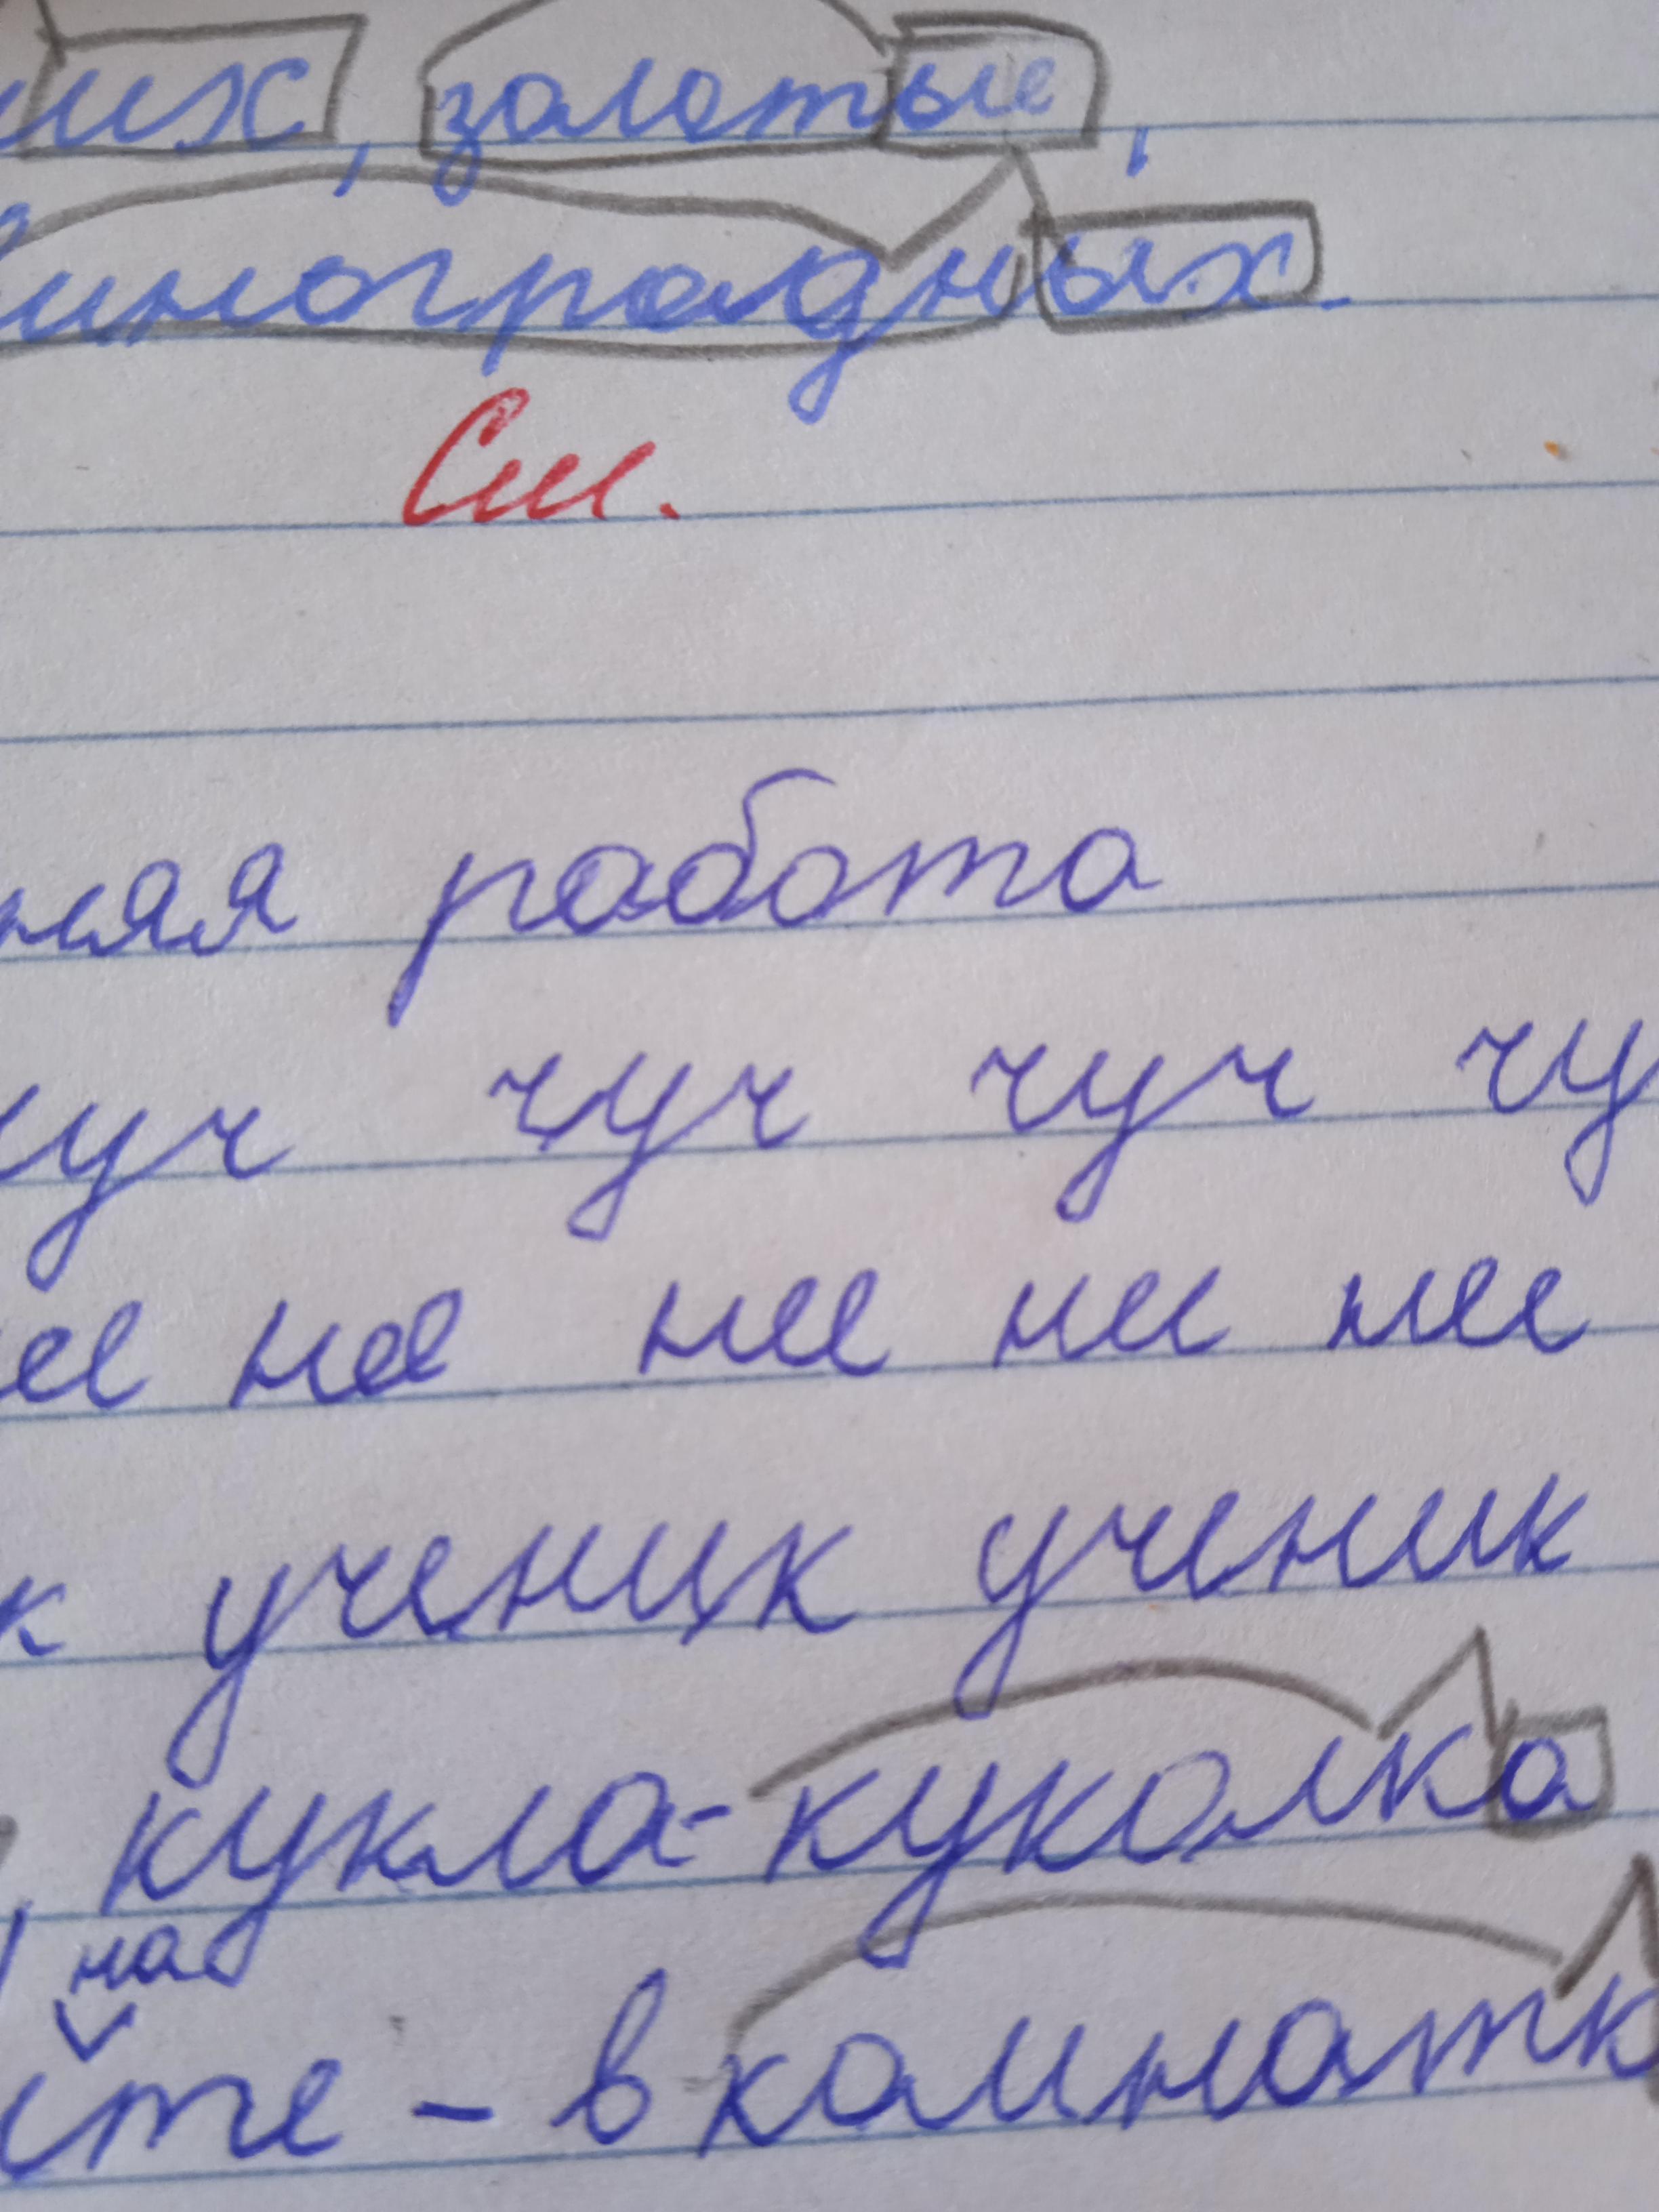 их, золотые,
виноградных.
См.
няя работа
чуч чуч чуч чу
не не не не
к ученик ученик
кукла-куколка
на
йте - в комнатк